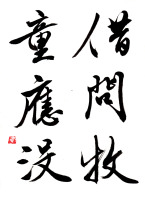 借問牧
童應沒